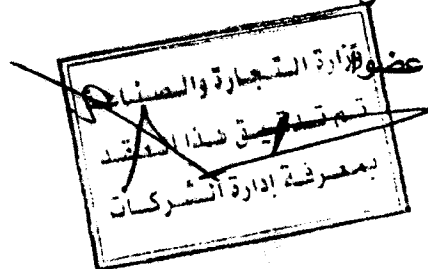 عضو
وزارة التجارة والصناعة
تم تدقيق هذا العقد
بمعرفة إدارة الشركات